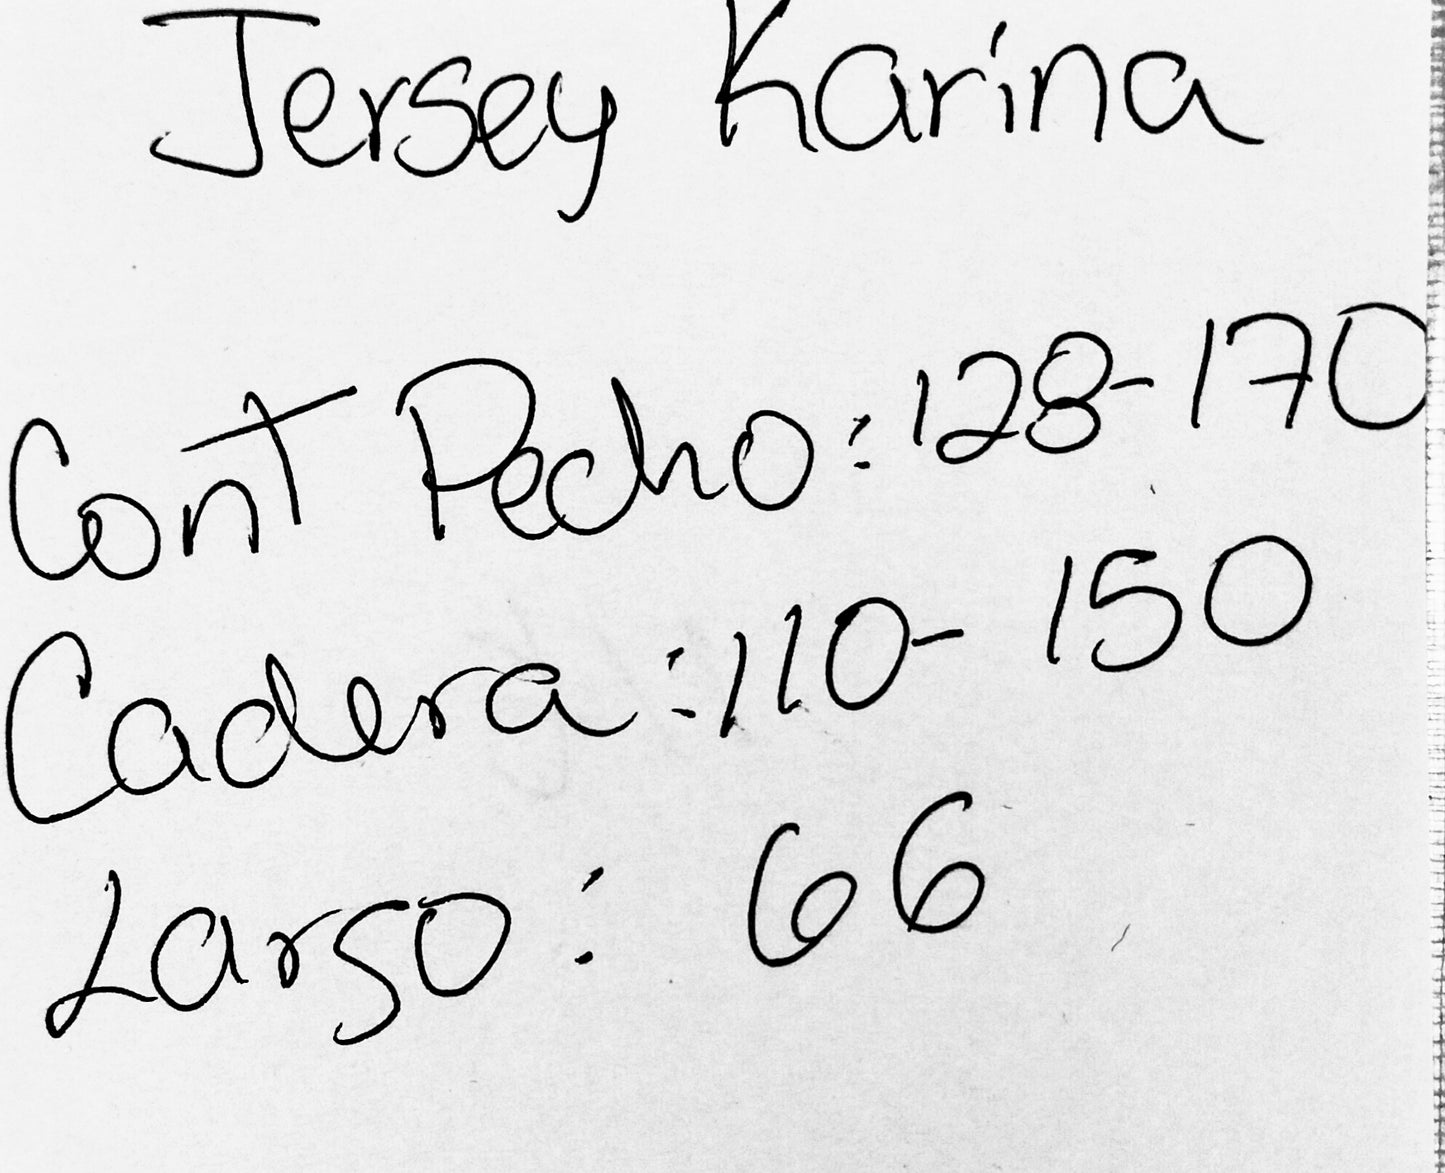 Jersey Karina
Cont Pecho: 128-170
Cadera: 110- 150
Largo: 66